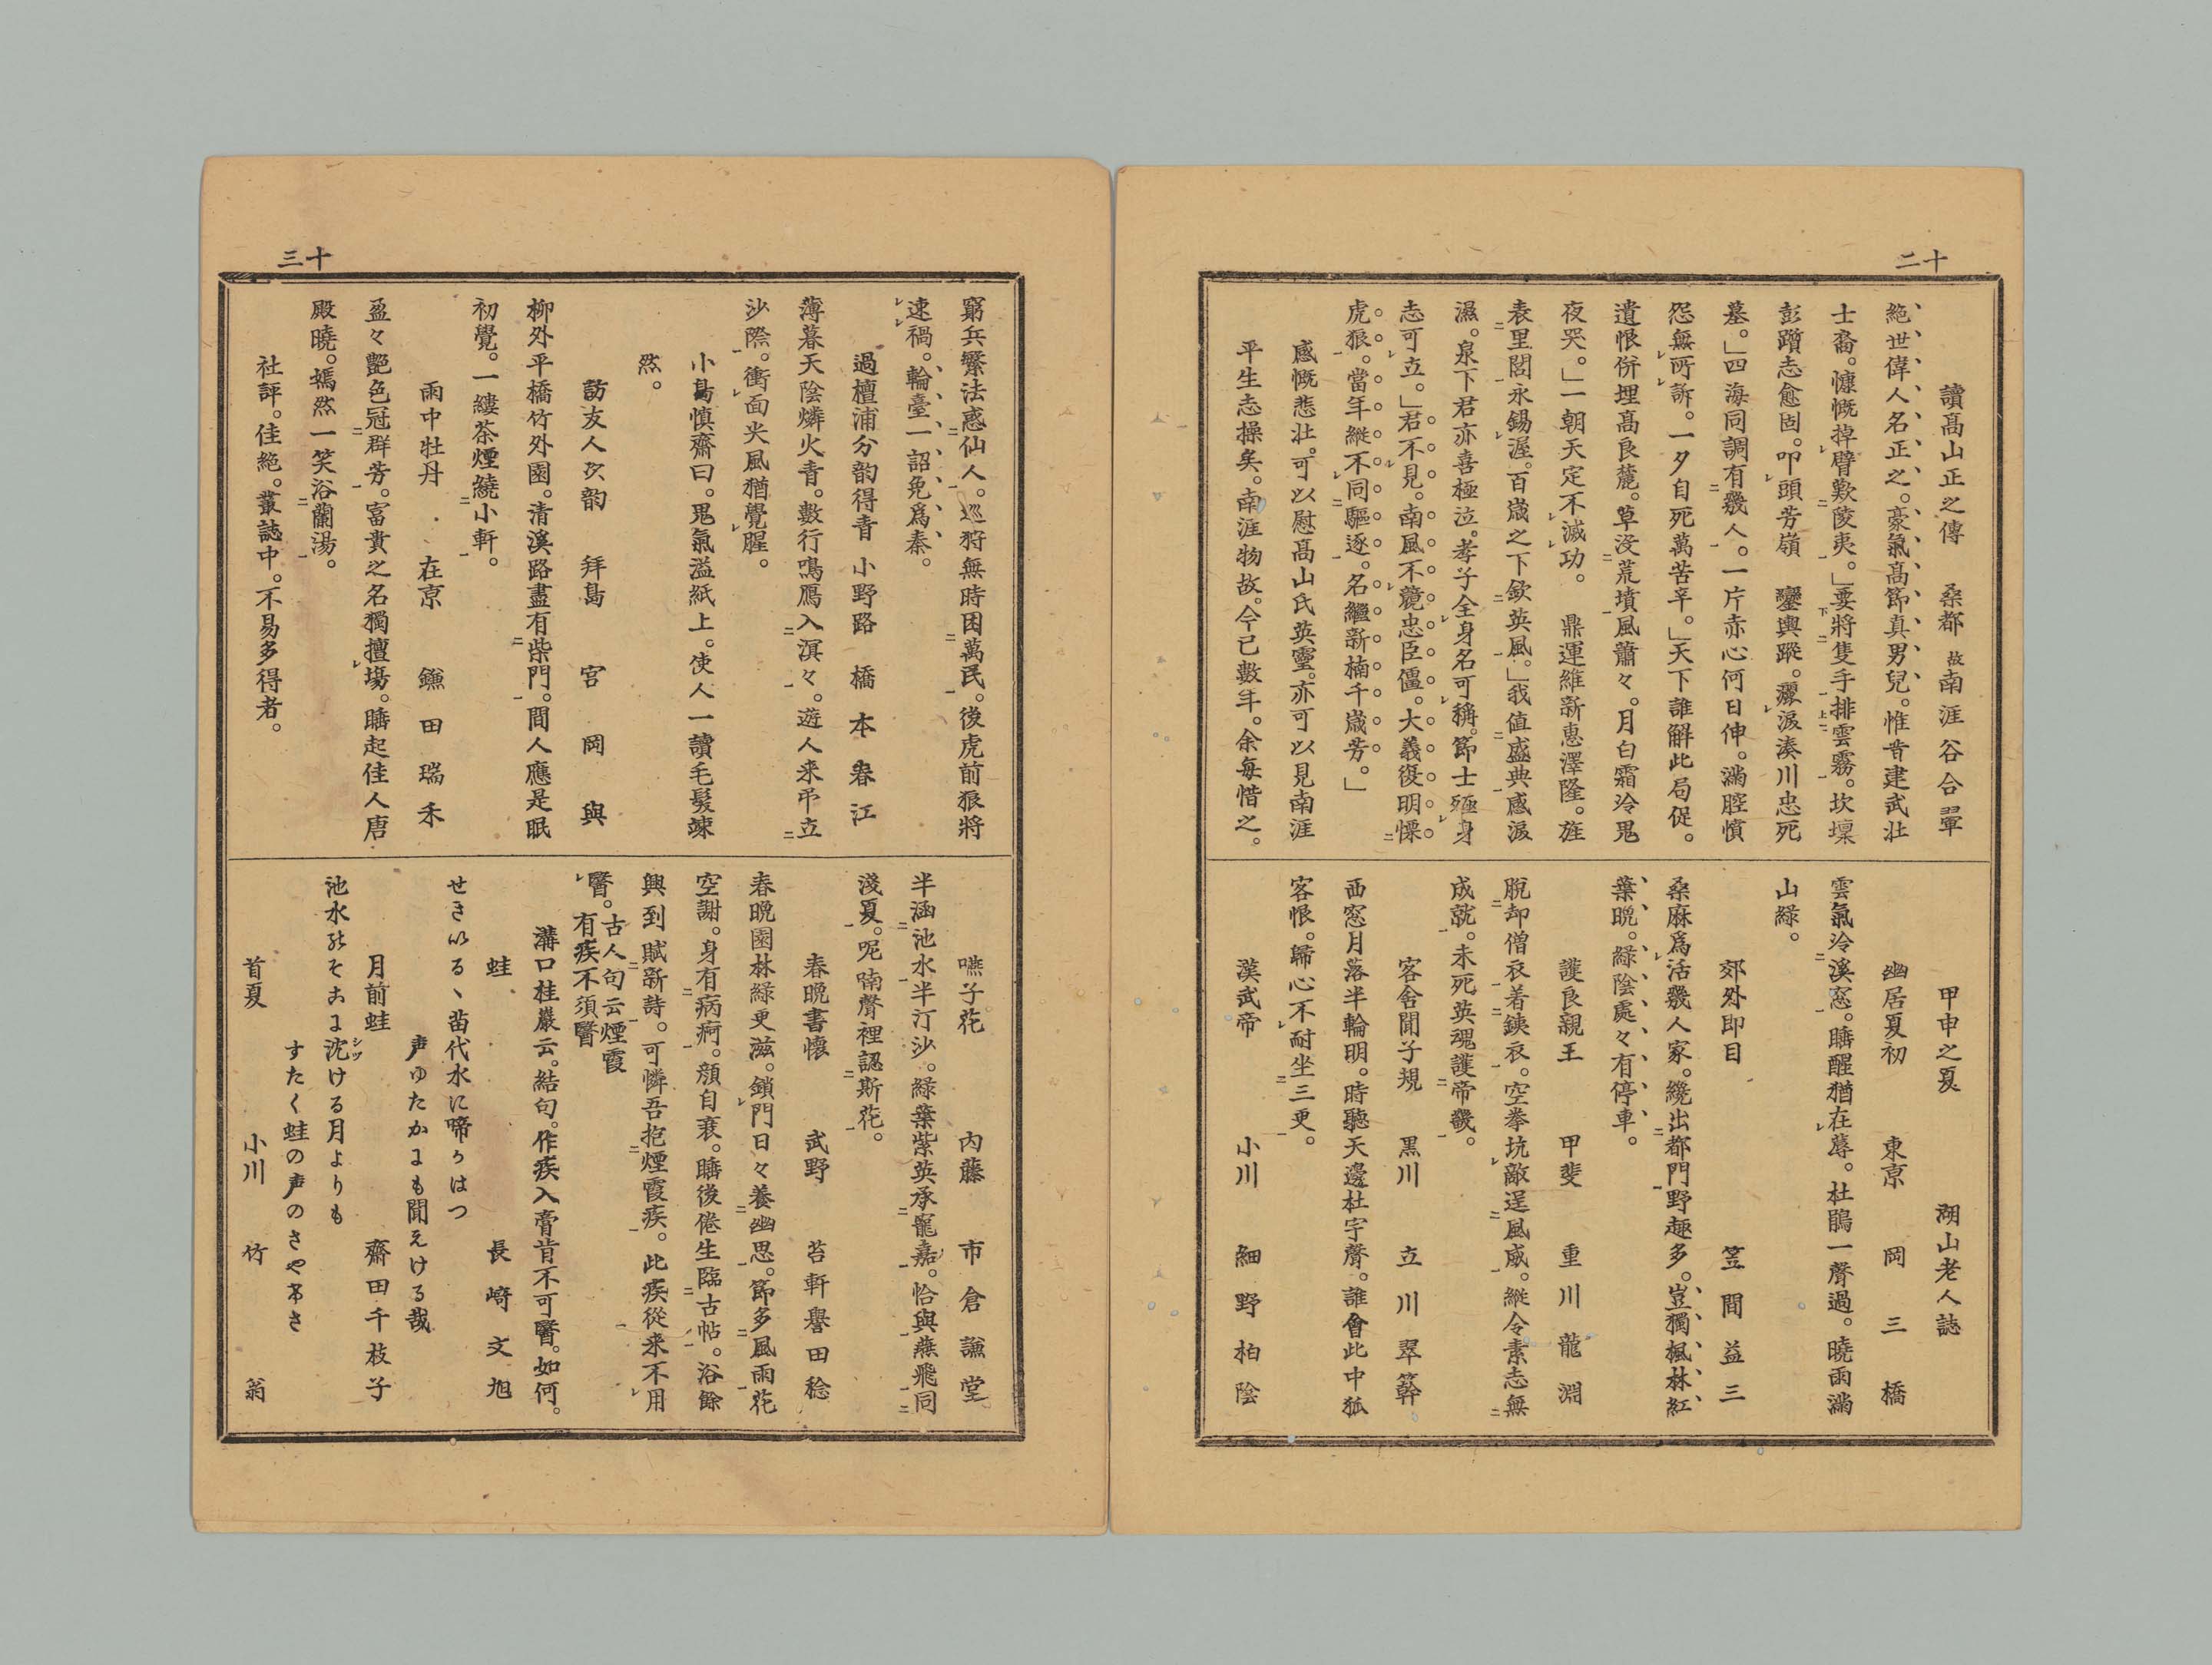 十二
讀髙山正之傳　桑都　故南涯谷合翬
絶世偉人名正之。豪氣髙節真男兒。惟昔建武壮
士裔。慷慨掉臂歎陵夷。」要將隻手排雲霧。坎壈
彭躓志愈固。叩頭芳嶺鑾輿蹤。灑淚湊川忠死
墓。」四海同調有幾人。一片赤心何日伸。滿腔憤
怨無所訴。一夕自死萬苦辛。」天下誰解此局促。
遺恨併埋髙良麓。草没荒墳風蕭々。月白霜冷鬼
夜哭。」一朝天定不滅功。鼎運維新惠澤隆。旌
表里閭永錫渥。百歳之下欽英風。」我値盛典感淚
濕。泉下君亦喜極泣。孝子全身名可稱。節士殛身
志可立。」君不見。南風不競忠臣僵。大義復明慄
虎狼。當年縱不同驅逐。名繼新楠千歳芳。」
感慨悲壮。可以慰髙山氏英靈。亦可以見南涯
平生志操矣。南涯物故。今已數年。余毎惜之。
甲申之夏　湖山老人誌
幽居夏初　東京　岡三橋
雲氣冷溪窓。睡醒猶在蓐。杜鵑一聲過。曉雨滿
山緑。
郊外即目　笠間益三
桑麻爲活幾人家。纔出都門野趣多。豈獨楓林紅
葉晩。緑陰處々有停車。
護良親王　甲斐　重川龍淵
脱却僧衣着銕衣。空拳坑敵逞風威。縱令素志無
成就。未死英魂護帝畿。
客舎聞子規　黒川　立川翠簳
西窓月落半輪明。時聽天邊杜宇聲。誰會此中孤
客恨。歸心不耐坐三更。
漢武帝　小川　細野柏陰
十三
窮兵繁法惑仙人。巡狩無時困萬民。後虎前狼將
速禍。輪臺一詔免爲秦。
過檀浦分韵得青　小野路　橋本春江
薄暮天陰燐火青。數行鳴鴈入溟々。遊人来弔立
沙際。衝面尖風猶覺腥。
小島慎齋曰。鬼氣溢紙上。使人一讀毛髪竦
然。
訪友人次韵　拜島　宮岡與
柳外平橋竹外園。清溪路盡有柴門。間人應是眠
初覺。一縷茶煙繞小軒。
雨中牡丹　在京　鎌田瑞禾
盈々艶色冠群芳。富貴之名獨擅塲。睡起佳人唐
殿曉。嫣然一笑浴蘭湯。
社評。佳絶。叢誌中。不易多得者。
嚥子花　内藤　市倉謙堂
半涵池水半汀沙。緑葉紫英承寵嘉。恰與燕飛同
淺夏。呢喃聲裡認斯花。
春晩書懷　武野　苔軒譽田稔
春晩園林緑更滋。鎖門日々養幽思。節多風雨花
空謝。身有病痾。顔自衰。睡後倦生臨古帖。浴餘
興到賦新詩。可憐吾抱煙霞疾。此疾從来不用
醫。古人句云煙霞
有疾不須醫
溝口桂巖云。結句。作疾入膏肓不可醫。如何。
蛙　長崎文旭
せきいるヽ苗代水に啼かはつ
声ゆたかにも聞えける哉
月前蛙　齋田千枝子
池水のそこに沈シヅける月よりも
すたく蛙の声のさやけさ
首夏　小川　竹翁